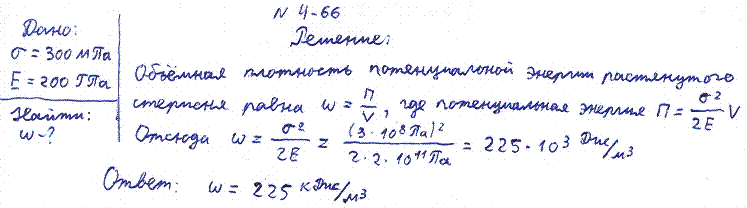 N 4-66
Дано:
σ = 300 МПа
E = 200 ГПа
Найти:
w - ?
Решение:
Объёмная плотность потенциальной энергии растянутого
стержня равна w = П/V, где потенциальная энергия П = σ²/2E V
Отсюда w = σ²/2E = (3·10⁸ Па)²/2·2·10¹¹ Па = 225·10³ Дж/м³
Ответ: w = 225 кДж/м³